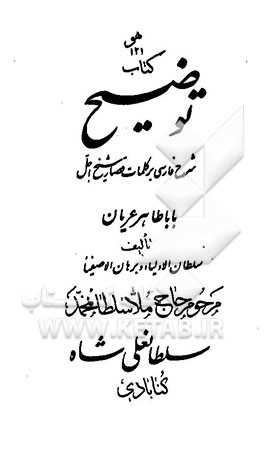 هو
۱۲۱
کتاب
توضیح
شرح فارسی بر کلمات قصار شیخ اجل
باباطاهر عریان
تألیف
سلطان الاولیاء و برهان الاصفیاء
مرحوم حاج ملا سلطانمحمد
سلطانعلی شاه
گنابادی
WWW.KETAB.IR